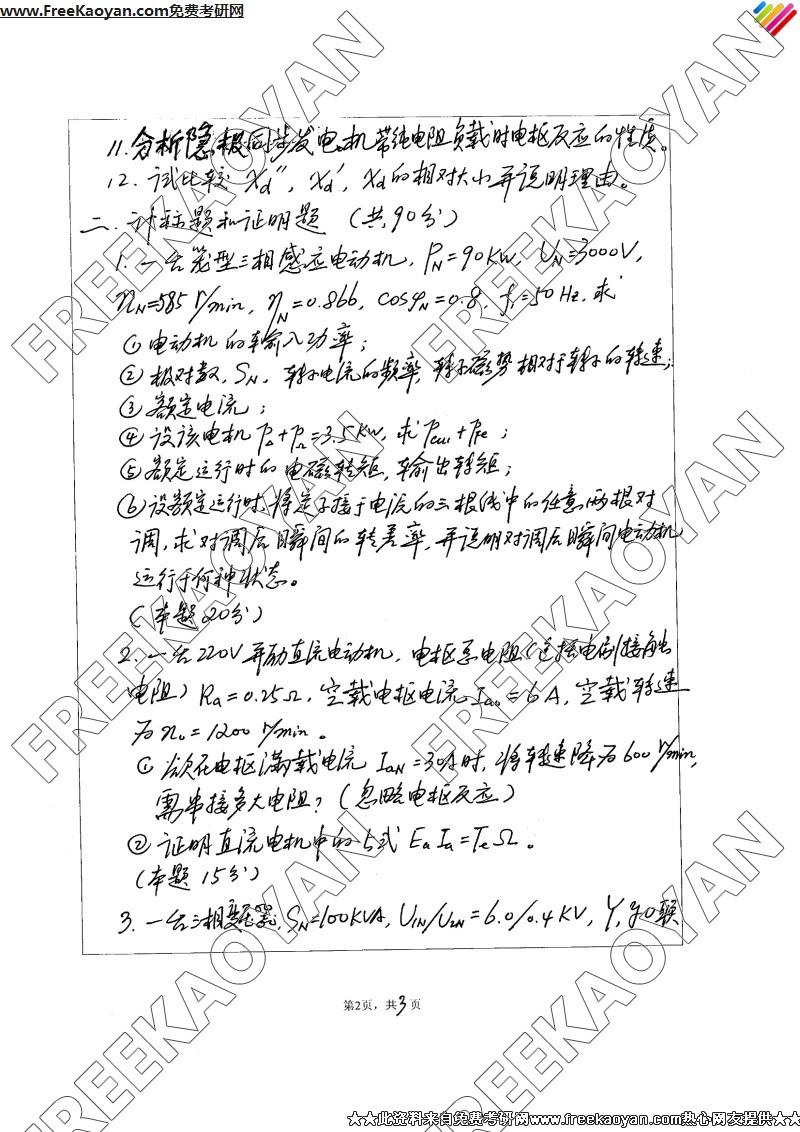 www.FreeKaoyan.com免费考研网
11. 分析隐极同步发电机带纯电阻负载时电枢反应的性质。
12. 试比较 Xd″, Xd′, Xd 的相对大小并说明理由。
二. 计算题和证明题 (共90分)
1. 一台笼型三相感应电动机, PN=90KW, UN=3000V,
nN=585 r/min, ηN=0.866, cosφN=0.8, f1=50Hz. 求
① 电动机的输入功率;
② 极对数, SN, 转子电流的频率, 转子磁势相对于转子的转速;
③ 额定电流;
④ 设该电机 PΔ+PΩ=3.5KW, 求 Pcu1+PFe;
⑤ 额定运行时的电磁转矩, 输出转矩;
⑥ 设额定运行时, 将定子接于电流的三根线中的任意两根对
调, 求对调后瞬间的转差率, 并说明对调后瞬间电动机
运行于何种状态。
(本题20分)
2. 一台220V并励直流电动机, 电枢总电阻(包括电刷接触
电阻) Ra=0.25Ω, 空载电枢电流 Ia0=6A, 空载转速
为 n0=1200 r/min。
① 欲在电枢满载电流 IaN=30A时, 将转速降为600 r/min,
需串接多大电阻? (忽略电枢反应)
② 证明直流电机中的公式 EaIa=TeΩ。
(本题15分)
3. 一台三相变压器, SN=100KVA, U1N/U2N=6.0/0.4KV, Y,y0联
第2页, 共3页
FREEKAOYAN
FREEKAOYAN
FREEKAOYAN
FREEKAOYAN
FREEKAOYAN
FREEKAOYAN
FREEKAOYAN
FREEKAOYAN
★★此资料来自免费考研网www.freekaoyan.com热心网友提供★★